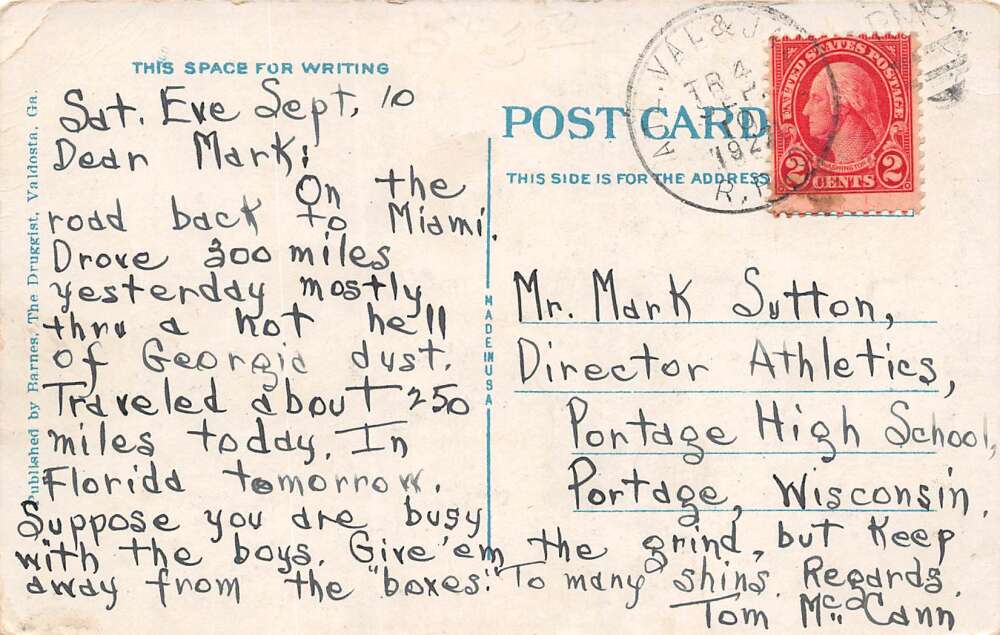 THIS SPACE FOR WRITING
Sat. Eve Sept. 10
Dear Mark:
On the
road back to Miami.
Drove 300 miles
yesterday mostly
thru a hot hell
of Georgia dust.
Traveled about 250
miles today. In
Florida tomorrow.
Suppose you are busy
with the boys. Give 'em the grind, but keep
away from the "boxes." To many shins. Regards.
Tom McCann
Published by Barnes, The Druggist, Valdosta, Ga.
MADE IN USA
POST CARD
THIS SIDE IS FOR THE ADDRESS
VAL & J
TR 4
SEP
10
R.P.O.
UNITED STATES POSTAGE
WASHINGTON
2 CENTS 2
Mr. Mark Sutton,
Director Athletics,
Portage High School,
Portage, Wisconsin.